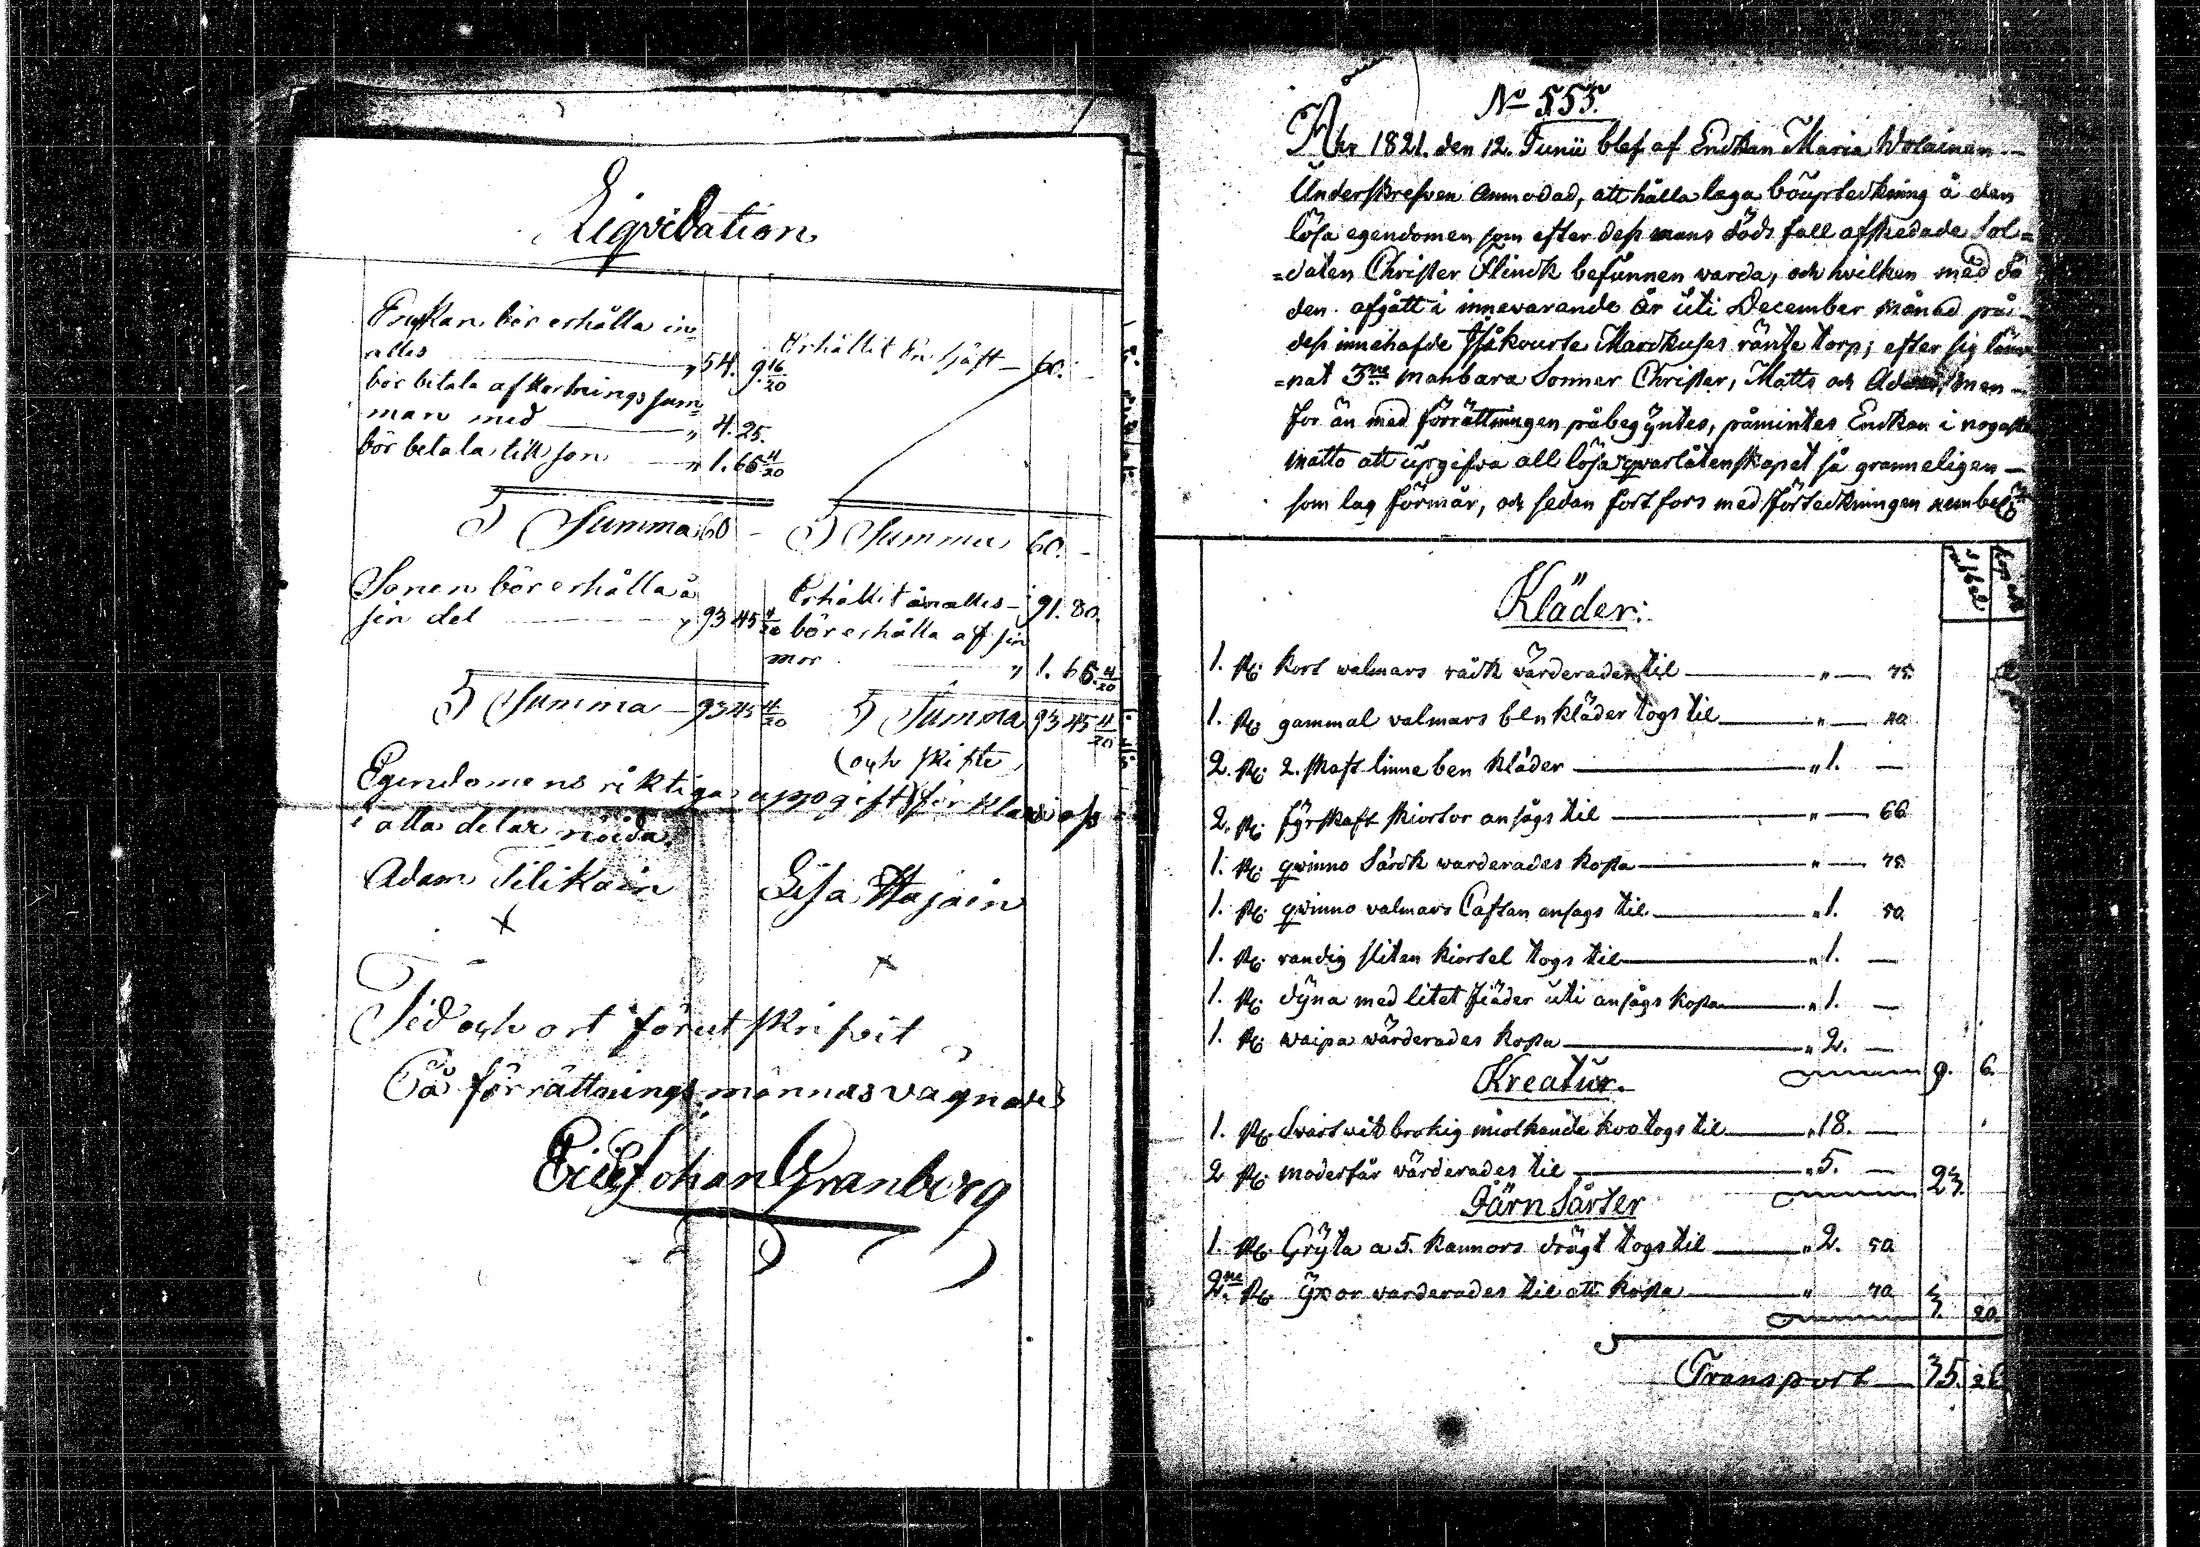 Liqvidation
Enkan bör erhålla in
alles " 54. 9 16/20
bör betala afkortnings sum=
man med " 4. 25.
bör betala till son " 1. 65 4/20
Summa 60 —
Erhållit 60. —
Summa 60. —
Sonen bör erhålla å
sin del " 93 45 4/20
Summa — 93 45 4/20
Erhållit in alles — 91. 80.
bör erhålla af sin
mor " 1. 65. 4/20
Summa 93 45 4/20
(och skifte)
Egendomens riktiga uppgift förklara
i alla delar nöida.
Adam Silikain Lisa Hajain
x x
Tid och ort förut skrifvit
På förrättnings männas vägnar
Eric Johan Granberg
No 555.
Ahr 1821. den 12. Junii blef af Enckan Maria Wolainen —
Underskrefven anmodad, att hålla laga böupteckning å den
lösa egendomen som efter dess mans döds fall afskedade Sol=
=daten Christer Flinck befunnen varda, och hvilken med dö
den afgått i innevarande år uti December månad på
dess innehafde Marckuses ränte torp; efter sig läm
=nat 3ne manbara Sönner Christer, Matts och Adam, men —
för än med förrättningen påbegyntes, påmintes Enckan i nogaste
matto att upgifva all lösa qvarlåtenskapet så granneligen —
som lag förmår, och sedan fortfors med förteckningen
Kläder:
1. st. kort walmars råck värderades til " — 75.
1. st. gammal valmars benkläder togs til " — 40
2. st. 2. skaft linne ben kläder " 1. —
2. st. fyrskaft skiortor ansågs til " — 66
1. st. qwinno Särck warderades kosta " — 75.
1. st. qwinno valmars Caftan ansags til " 1. 50.
1. st. randig sliten kiortel togs til " 1. —
1. st. dyna med litet fiäder uti ansågs kosta " 1. —
1. st. waipa wärderades kosta " 2. — 9. 6.
Kreatur.
1. st. Svart vit brokig miolkande ko togs til " 18. —
2 st. moderfår wärderades til " 5. — 23.
Järn Sårter
1. st. Gryta a 5. kannors drägt togs til " 2. 50
2ne st. yxor warderades til att kosta " 70 3. 20.
Transport — 35. 26